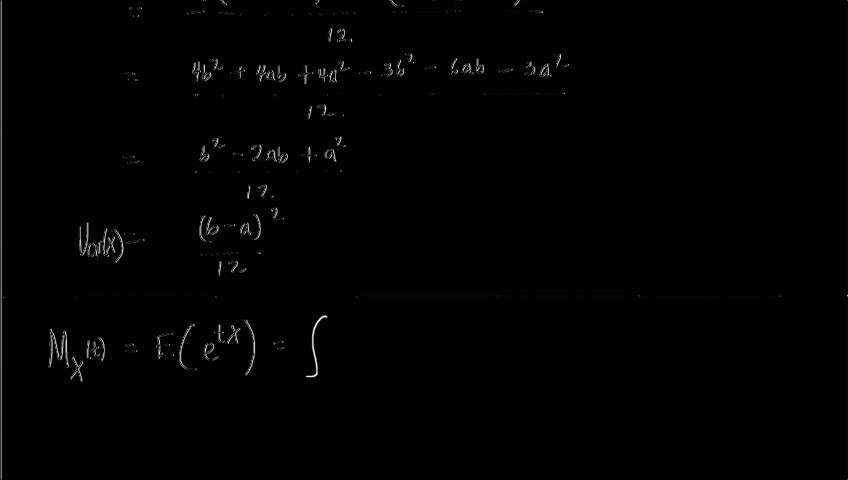 =
12.
= 4b² + 4ab + 4a² - 3b² - 6ab - 3a²
12.
= b² - 2ab + a²
12
Var(x) = (b-a)²
12
M_X(t) = E(e^{tX}) = ∫